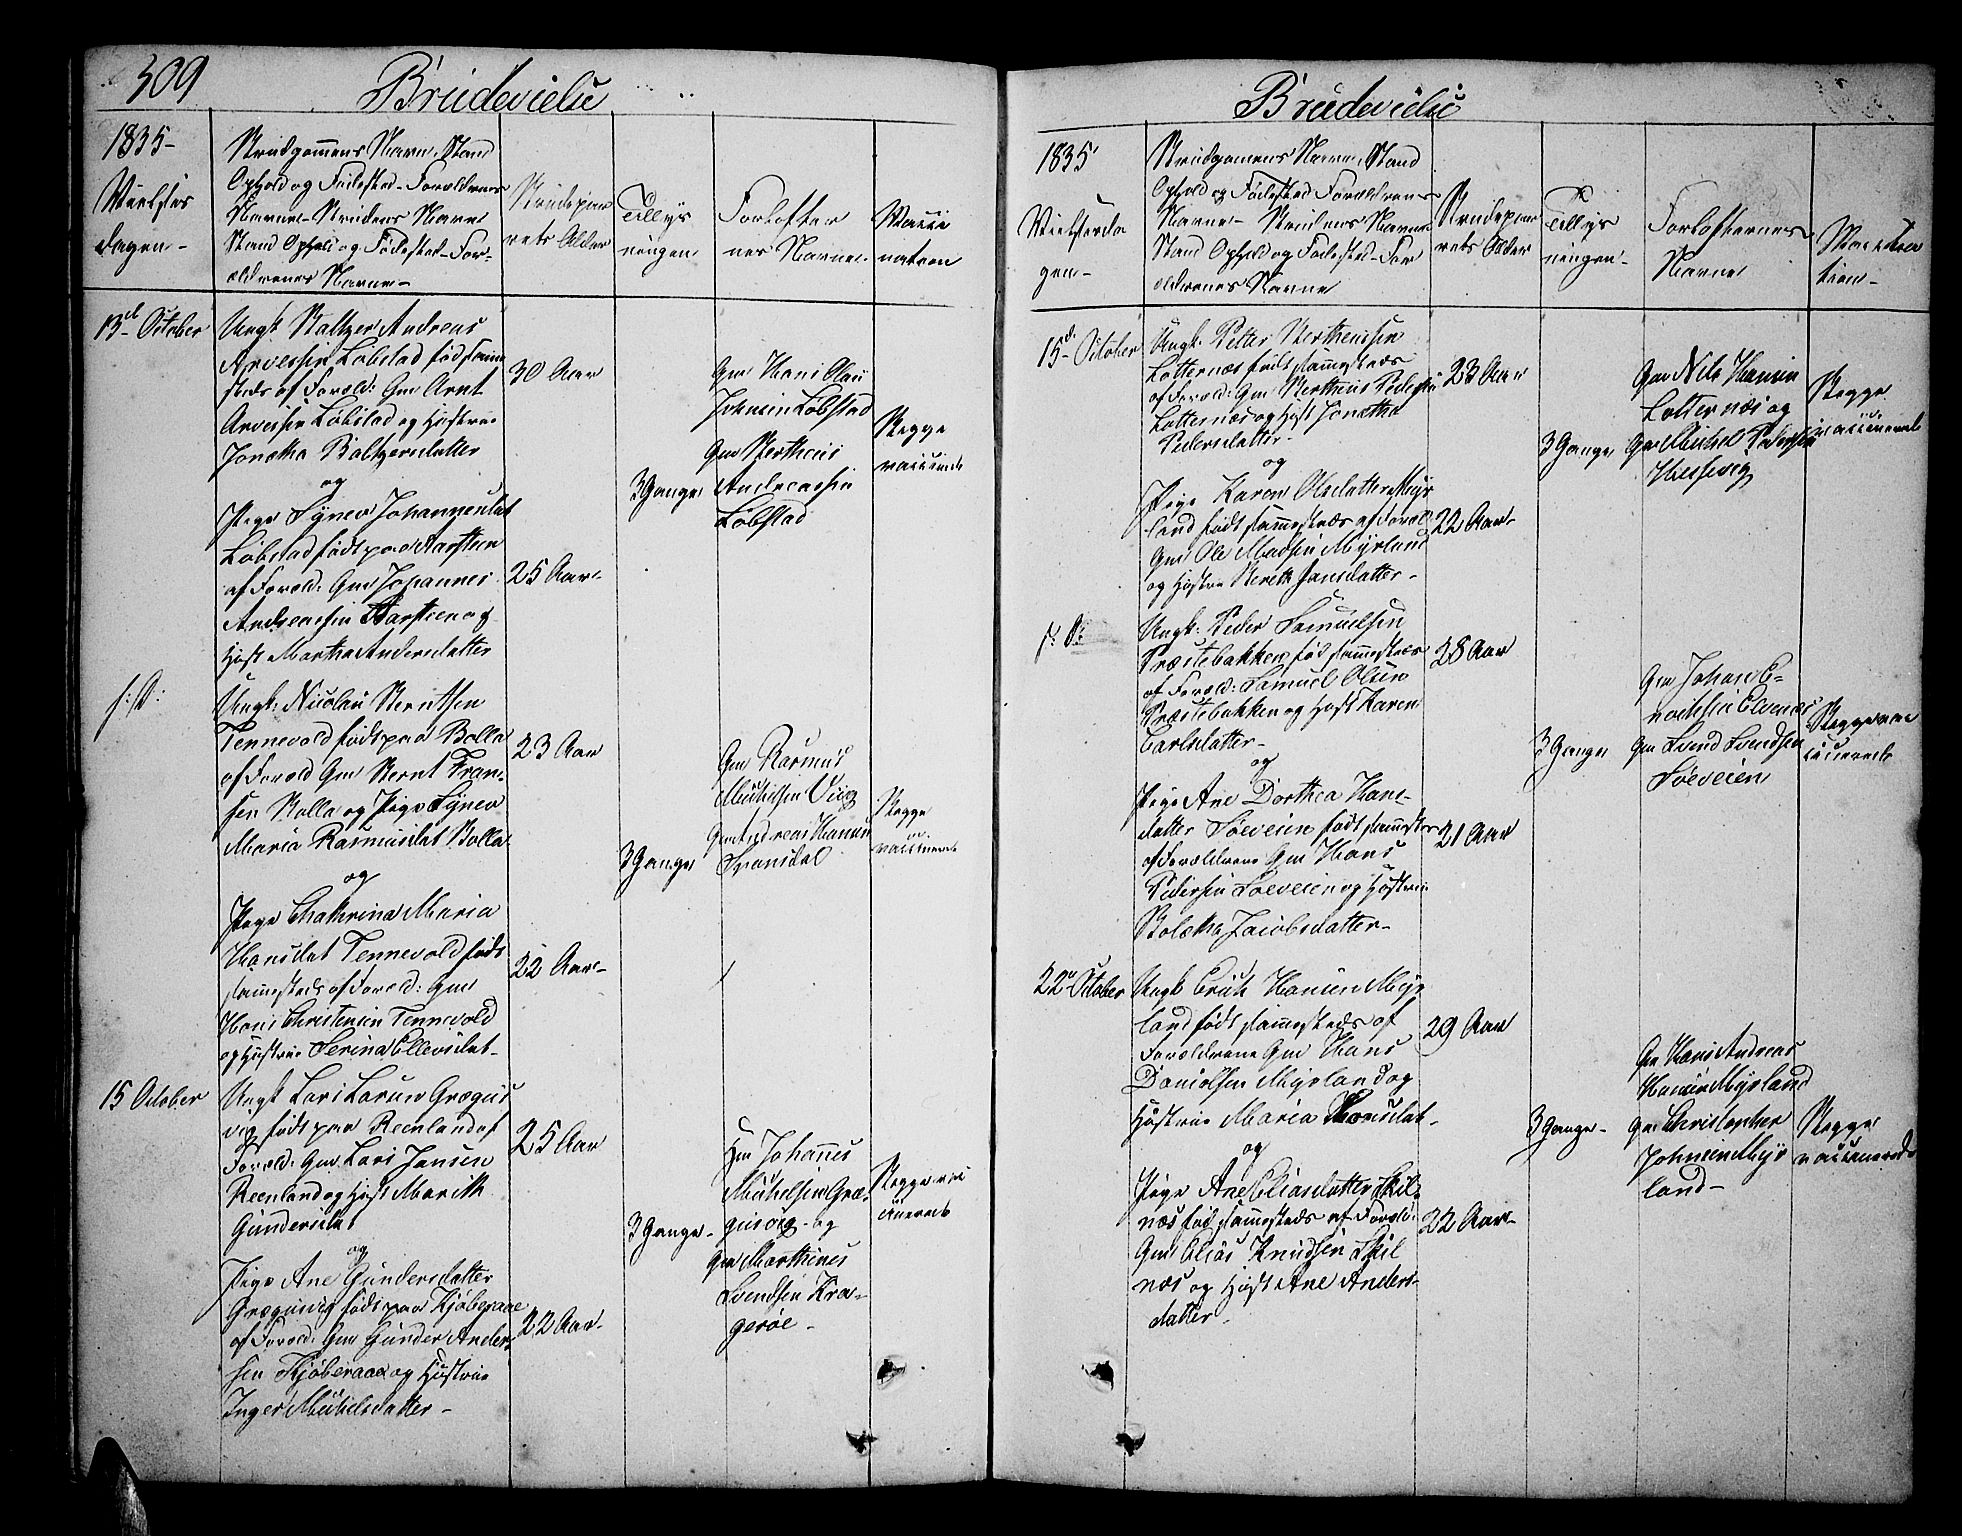 309
Brudevielse
1835-
Vielses
dagen-
Brudgommens Navn, Stand
Ophold og Fødested-Forældrenes
Navne-Brudens Navn
Stand Ophold og Fødested-For-
ældrenes Navne-
Brudepar
rets Alder
Tillys
ningen
Forlofter
nes Navne
Vacci
nation
13d October
Ungk Baltzer Andreas
Arvessen Løbstad fød samme
steds af Foræld: Gm Arnt
Arvessen Løbstad og Hustrue
Jonetha Baltzersdatter
og
Pige Synev Johannesdat
Løbstad født paa Barsteen
af Foræld: Gm Johannes
Andreassen Barsteen og
Hust Martha Andersdatter
30 Aar
25 Aar-
3 Gange
Gm Hans Olai
Johnsen Løbstad
Gm Bertheus
Andreassen
Løbstad
Begge
vaccinerede
s: D:
Ungk: Nicolai Berntsen
Tennevold født paa Bolla
af Foræld Gm Bernt Fran-
sen Bolla og Pige Synev
Maria Rasmusdat Bolla
og
Pige Chathrina Maria
Hansdat Tennevold født
sammesteds af Foræld: Gm
Hans Christensen Tennevold
og Hustrue Serina Ellevsdat-
23 Aar
22 Aar-
3 Gange
Gm Rasmus
Michelsen Viig
Gm Andreas Hansen
Svansdal
Begge
vaccinerede
15 October
Ungk Lars Larsen Grægus
vig født paa Reenland af
Foræld: Gm Lars Jansen
Reenland og Hust Marith
Gundersdat
og
Pige Ane Gundersdatter
Grægusvig født paa Kjøberaae
af Foræld: Gm Gunder Ander-
sen Kjøberaae og Hustrue
Inger Michelsdatter-
25 Aar
22 Aar-
3 Gange-
Hm Johannes
Michelsen Græ-
gusvig- og
Gm Marthines
Svendsen Kra-
gerøe-
Begge vac
cinerede
Brudevielse
1835
Vielserda
gen-
Brudgommens Navn, Stand
Ophold og Fødested Forældrenes
Navne- Brudens Navn
Stand Ophold og Fødested-For
ældrenes Navne
Brudepar
rets Alder
Tillys
ningen-
Forlofternes
Navne
Vaccina
tion-
15d October
Ungk. Petter Bertheussen
Lotternæs født sammesteds
af Foræld: Gm Bertheus Pedersen
Lotternæs og Hust Jonetha
Pedersdatter-
og
Pige Karen Olsdatter Myr
land født sammesteds af Foræl:
Gm Ole Madsen Myrland
og Hustrue Bereth Jansdatter-
23 Aar
22 Aar-
3 Gange
Gm Nils Hansen
Lotternæs og
Gm Michel Pedersen
Hessevig
Begge
vaccinerede
s: D:
Ungk: Peder Samuelsen
Præstebakken fød sammesteds
af Foræld: Samuel Olsen
Præstebakken og Hust Karen
Carlsdatter-
og
Pige Ane Dorthea Hans-
datter Søeveien født sammesteds
af Forældrene Gm Hans
Pedersen Søeveien og Hustrue
Boletha Jacobsdatter-
28 Aar
21 Aar
3 Gange
Gm Johan E-
nochsen Elvenæs
Gm Svend Svendsen
Søeveien
Begge vac
cinerede
22 October
Ungk Erich Hansen Myr
land født sammesteds af
Forældrene Gm Hans
Danielsen Myrland og
Hustrue Maria Hansdat-
og
Pige Ane Eliasdatter Skil-
næs fød sammesteds af Foræld:
Gm Elias Knudsen Skil
næs og Hust Ane Anders-
datter-
29 Aar
22 Aar-
3 Gange-
Gm Hans Andreas
Hansen Myrland
Gm Christopher
Johnsen Myr
land-
Begge
vaccinerede